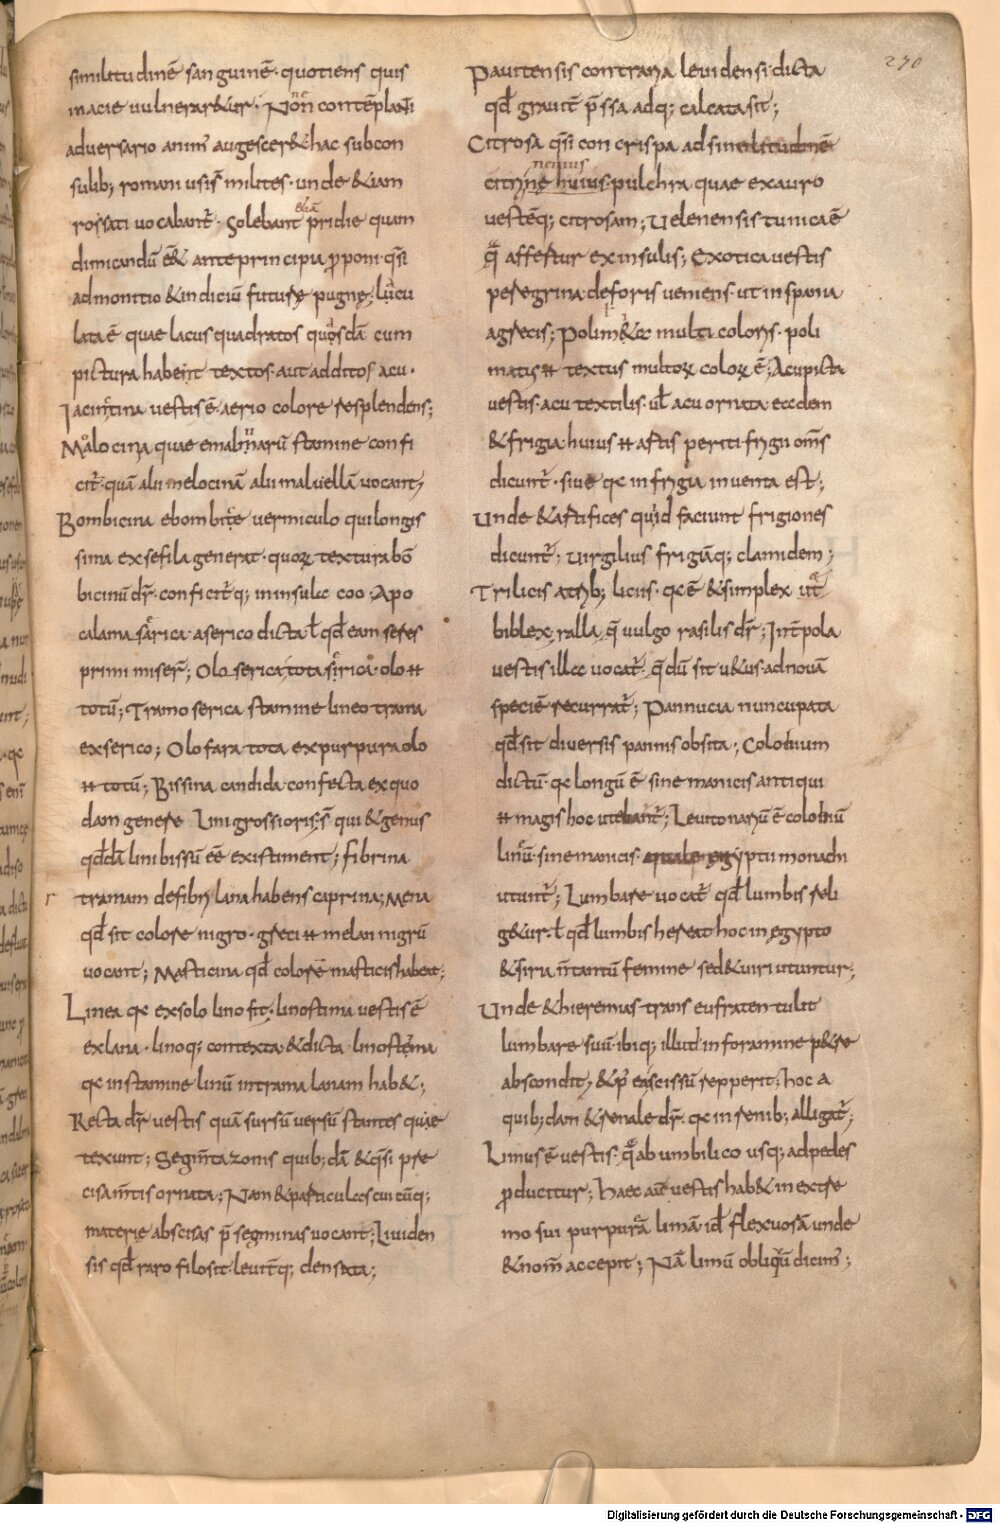 similitudinē sanguinē· quotiens quis
macie vulnerar&ur· Non contēplanī
adversario anim᾽ augescer& hac subcon
sulib; romani usis̄ milites· unde &iam
rossati vocabant᷑· Solebant &iā pridie quam
dimicandū ēē& ante principia ꝓponi· qs̄i
admonitio & indiciū futurę pugnę; lacu
lata ē quae lacus quadratos quosdā cum
pictura habent textos· aut additos acu·
Iacintina vestis ē aerio colore resplendens;
Malocina quae e malvarū stamine confi
cit᷑· quā alii melocinā alii malvellā vocant;
Bombicina e bombice vermiculo qui longis
sima ex se fila generat· quoꝝ textura bō
bicinū dr̄· conficit᷑q; in insula coo· Apo
calama sarica a serico dicta ł qđ eam seres
primi miser̄; Olo serica, tota sirica· olo ĕ
totū; Tramo serica stamine lineo trama
ex serico; Olofara tota ex purpura olo
totū; Bissina candida confecta ex quo
dam genere lini grossioris; s̄ qui & genus
qđdā lini bissū ēē existiment; fibrina
tramam de fibri lana habens caprina; Mena
qđ sit colore nigro· greci melan nigrū
vocant; Masticina qđ colorē masticis habeat;
Linea qȩ ex solo lino fit· linostima vestis ē
ex lana· linoq; contexta & dicta linostema
qȩ in stamine linū in trama lanam hab&;
Recta dr̄ vestis quā sursū versū stantes quae
texunt; Segm̄ta zonis quib; dā & qs̄i pre
cisam̄tis ornata; Nam & particulas cuicūq;
materie abscisas p̄segminas vocant; Lividen
sis qđ raro filo sit· levit᷑q; densata;
Pavitensis contraria levidensi· dicta
qđ gravit᷑ p̄ssa adq; calcata sit;
Citrosa qs̄i concrispa ad similitudinē
citri· nemus
nę huius pulchra quae ex auro
vestēq; citrosam; Velenensis tunica ē
q̄ affertur ex insulis; Exotica vestis
peregrina· de foris veniens· ut in spania
a grecis; Polimita multi coloris· poli
mitus textus multoꝝ coloꝝ ē; Acupicta
vestis· acu textilis· uł acu ornata· eadem
& frigia· huius artis periti frygii om̄s
dicunt᷑· sive qȩ in frigia inventa est;
Unde & artifices qui id faciunt frigiones
dicunt᷑; Virgilius frigiāq; clamidem;
Trilicis a trib; liciis· qȩ ē & simplex ut᷑
biblex, ralla, q̄ vulgo rasilis dr̄; Int᷑pola
vestis illa vocat᷑· q̄ dū sit u&us· ad novā
speciē recurrat᷑; Pannucia nuncupata
qđ sit diversis pannis obsita; Colobium
dictū· qȩ longū ē sine manicis antiqui
magis hoc utebant᷑; Levitonariū ē colobiū
linū· sine manicis· quale egyptii monachi
utunt᷑; Lumbare vocat᷑ qđ lumbis reli
g&ur· ł qđ lumbis hereat· hoc in egypto
& siria n̄ tantū femine sed & viri utuntur;
Unde & hieremias trans eufraten tulit
lumbare suū· ibiq; illud in foramine p&re
abscondit; & p᷑ ea scissū repperit; hoc a
quib;dam & renale dr̄· qȩ in renib; alligat᷑;
Limus ē vestis· q̄ ab umbilico usq; ad pedes
ꝓducitur; Haec aut̄ vestis hab& in extre
mo sui purpurā limā id̄ flexuosā unde
& nom̄ accepit; Nā limū obliquū dicim᾽;
Digitalisierung gefördert durch die Deutsche Forschungsgemeinschaft - DFG